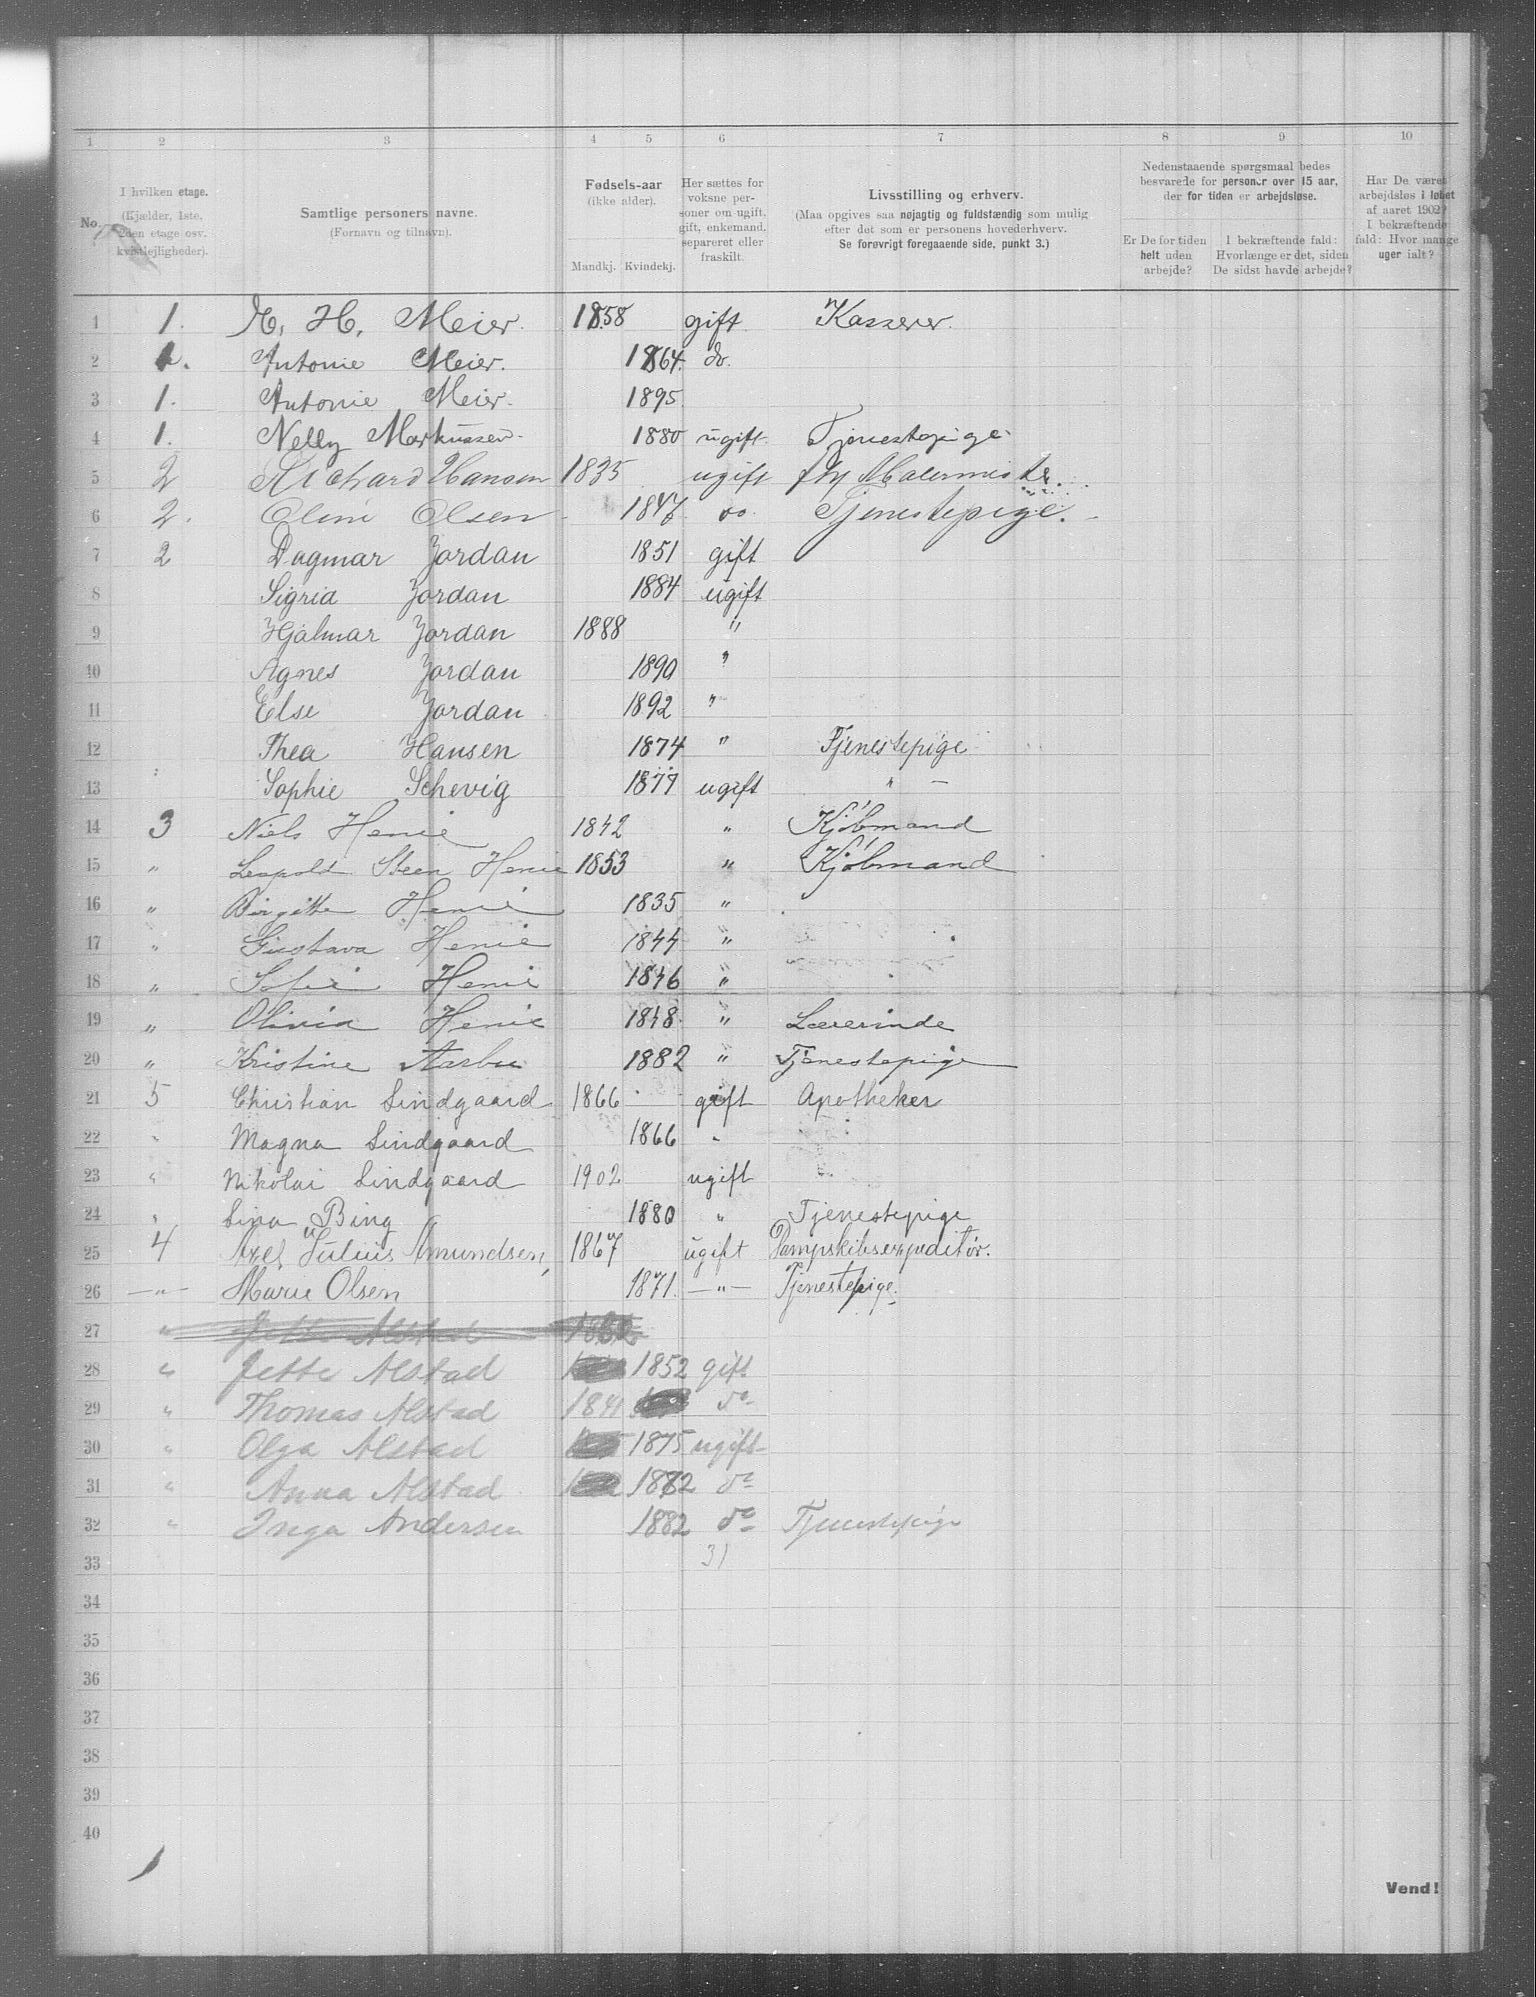 1 2 3 4 5 6 7 8 9 10
No. I hvilken etage. (Kjælder, 1ste, 2den etage osv. kvistlejligheder).
Samtlige personers navne. (Fornavn og tilnavn).
Fødsels-aar (ikke alder). Mandkj. Kvindekj.
Her sættes for voksne personer om ugift, gift, enkemand, separeret eller fraskilt.
Livsstilling og erhverv. (Maa opgives saa nøjagtig og fuldstændig som mulig efter det som er personens hovederhverv. Se forøvrigt foregaaende side, punkt 3.)
Nedenstaaende spørgsmaal bedes besvarede for personer over 15 aar, der for tiden er arbejdsløse.
Er De for tiden helt uden arbejde?
I bekræftende fald: Hvorlænge er det, siden De sidst havde arbejde?
Har De været arbejdsløs i løbet af aaret 1902? I bekræftende fald: Hvor mange uger ialt?
1 1. M. H. Meier. 1858 gift Kasserer.
2 1. Antonie Meier. 1864. do.
3 1. Antonie Meier. 1895.
4 1. Nelly Markussen 1880 ugift Tjenestepige
5 2 Richard Hansen 1835 ugift Malermester
6 2. Oline Olsen 1847 do Tjenestepige.
7 2 Dagmar Jordan 1851 gift
8 Sigrid Jordan 1884 ugift
9 Hjalmar Jordan 1888 "
10 Agnes Jordan 1890 "
11 Else Jordan 1892 "
12 Thea Hansen 1874 " Tjenestepige
13 Sophie Schevig 1877 ugift " —
14 3 Niels Henie 1842 " Kjøbmand
15 " Leopold Steen Henie 1853 " Kjøbmand
16 " Birgitte Henie 1835 "
17 " Gustava Henie 1844 "
18 " Sofie Henie 1846 "
19 " Olivia Henie 1848 " Lærerinde
20 " Kristine Aarbu 1882 " Tjenestepige
21 5 Christian Lindgaard 1866 gift Apotheker
22 " Magna Lindgaard 1866 "
23 " Nikolai Lindgaard 1902 ugift
24 " Lina Bing 1880 " Tjenestepige
25 4 Axel Julius Amundsen, 1867 ugift Dampskibsexpeditør.
26 —"— Marie Olsen 1871. —"— Tjenestepige.
27 " Jette Alstad 1852
28 " Jette Alstad 1852 gift
29 " Thomas Alstad 1841 do
30 " Olga Alstad 1875 ugift
31 " Anna Alstad 1882 do
32 " Inga Andersen 1882 do Tjenestepige
33 31
34
35
36
37
38
39
40
Vend!